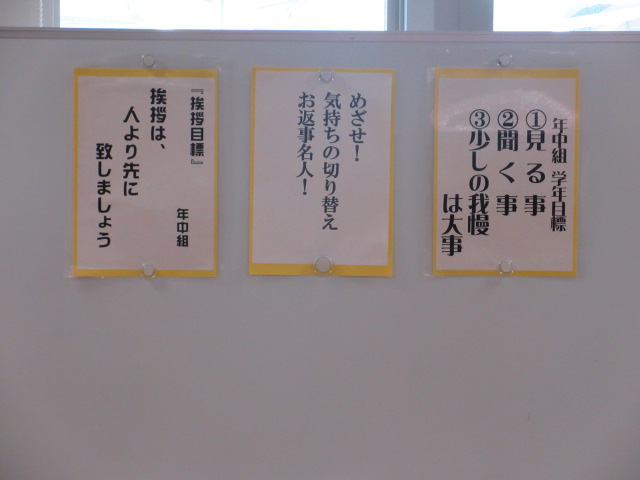 年中組 学年目標
①見る事
②聞く事
③少しの我慢
は大事
めざせ！
気持ちの切り替え
お返事名人！
『挨拶目標』
年中組
挨拶は、
人より先に
致しましょう